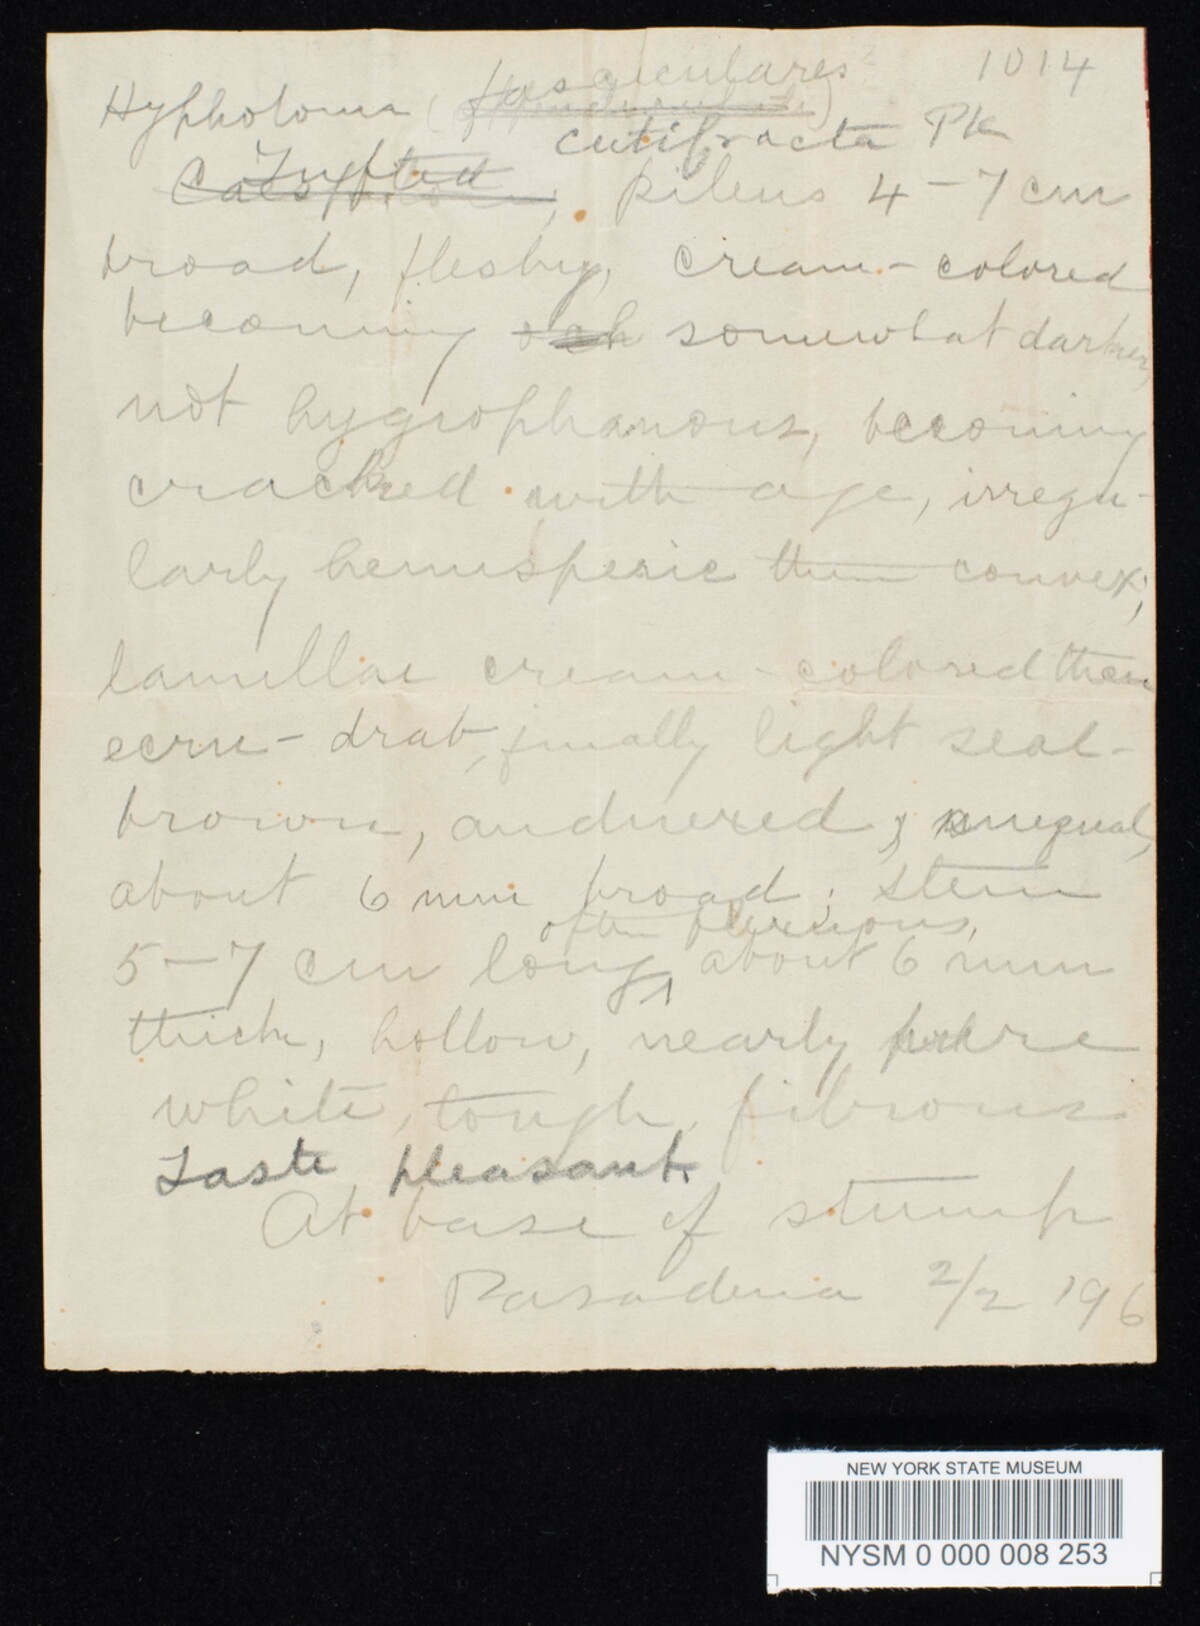 1014
Hypholoma (fasciculares?)
cutifracta Pk
Tufted, pileus 4-7 cm
broad, fleshy, cream-colored
becoming och somewhat darker,
not hygrophanous, becoming
cracked with age, irregu-
larly hemisperic then convex;
lamellae cream-colored then
ecru-drab, finally light seal-
brown, adnexed, unequal,
about 6 mm broad; stem
often flexuous,
5-7 cm long, about 6 mm
thick, hollow, nearly pure
white, tough, fibrous
Taste pleasant.
At base of stump
Pasadena 2/2 196
NEW YORK STATE MUSEUM
NYSM 0 000 008 253